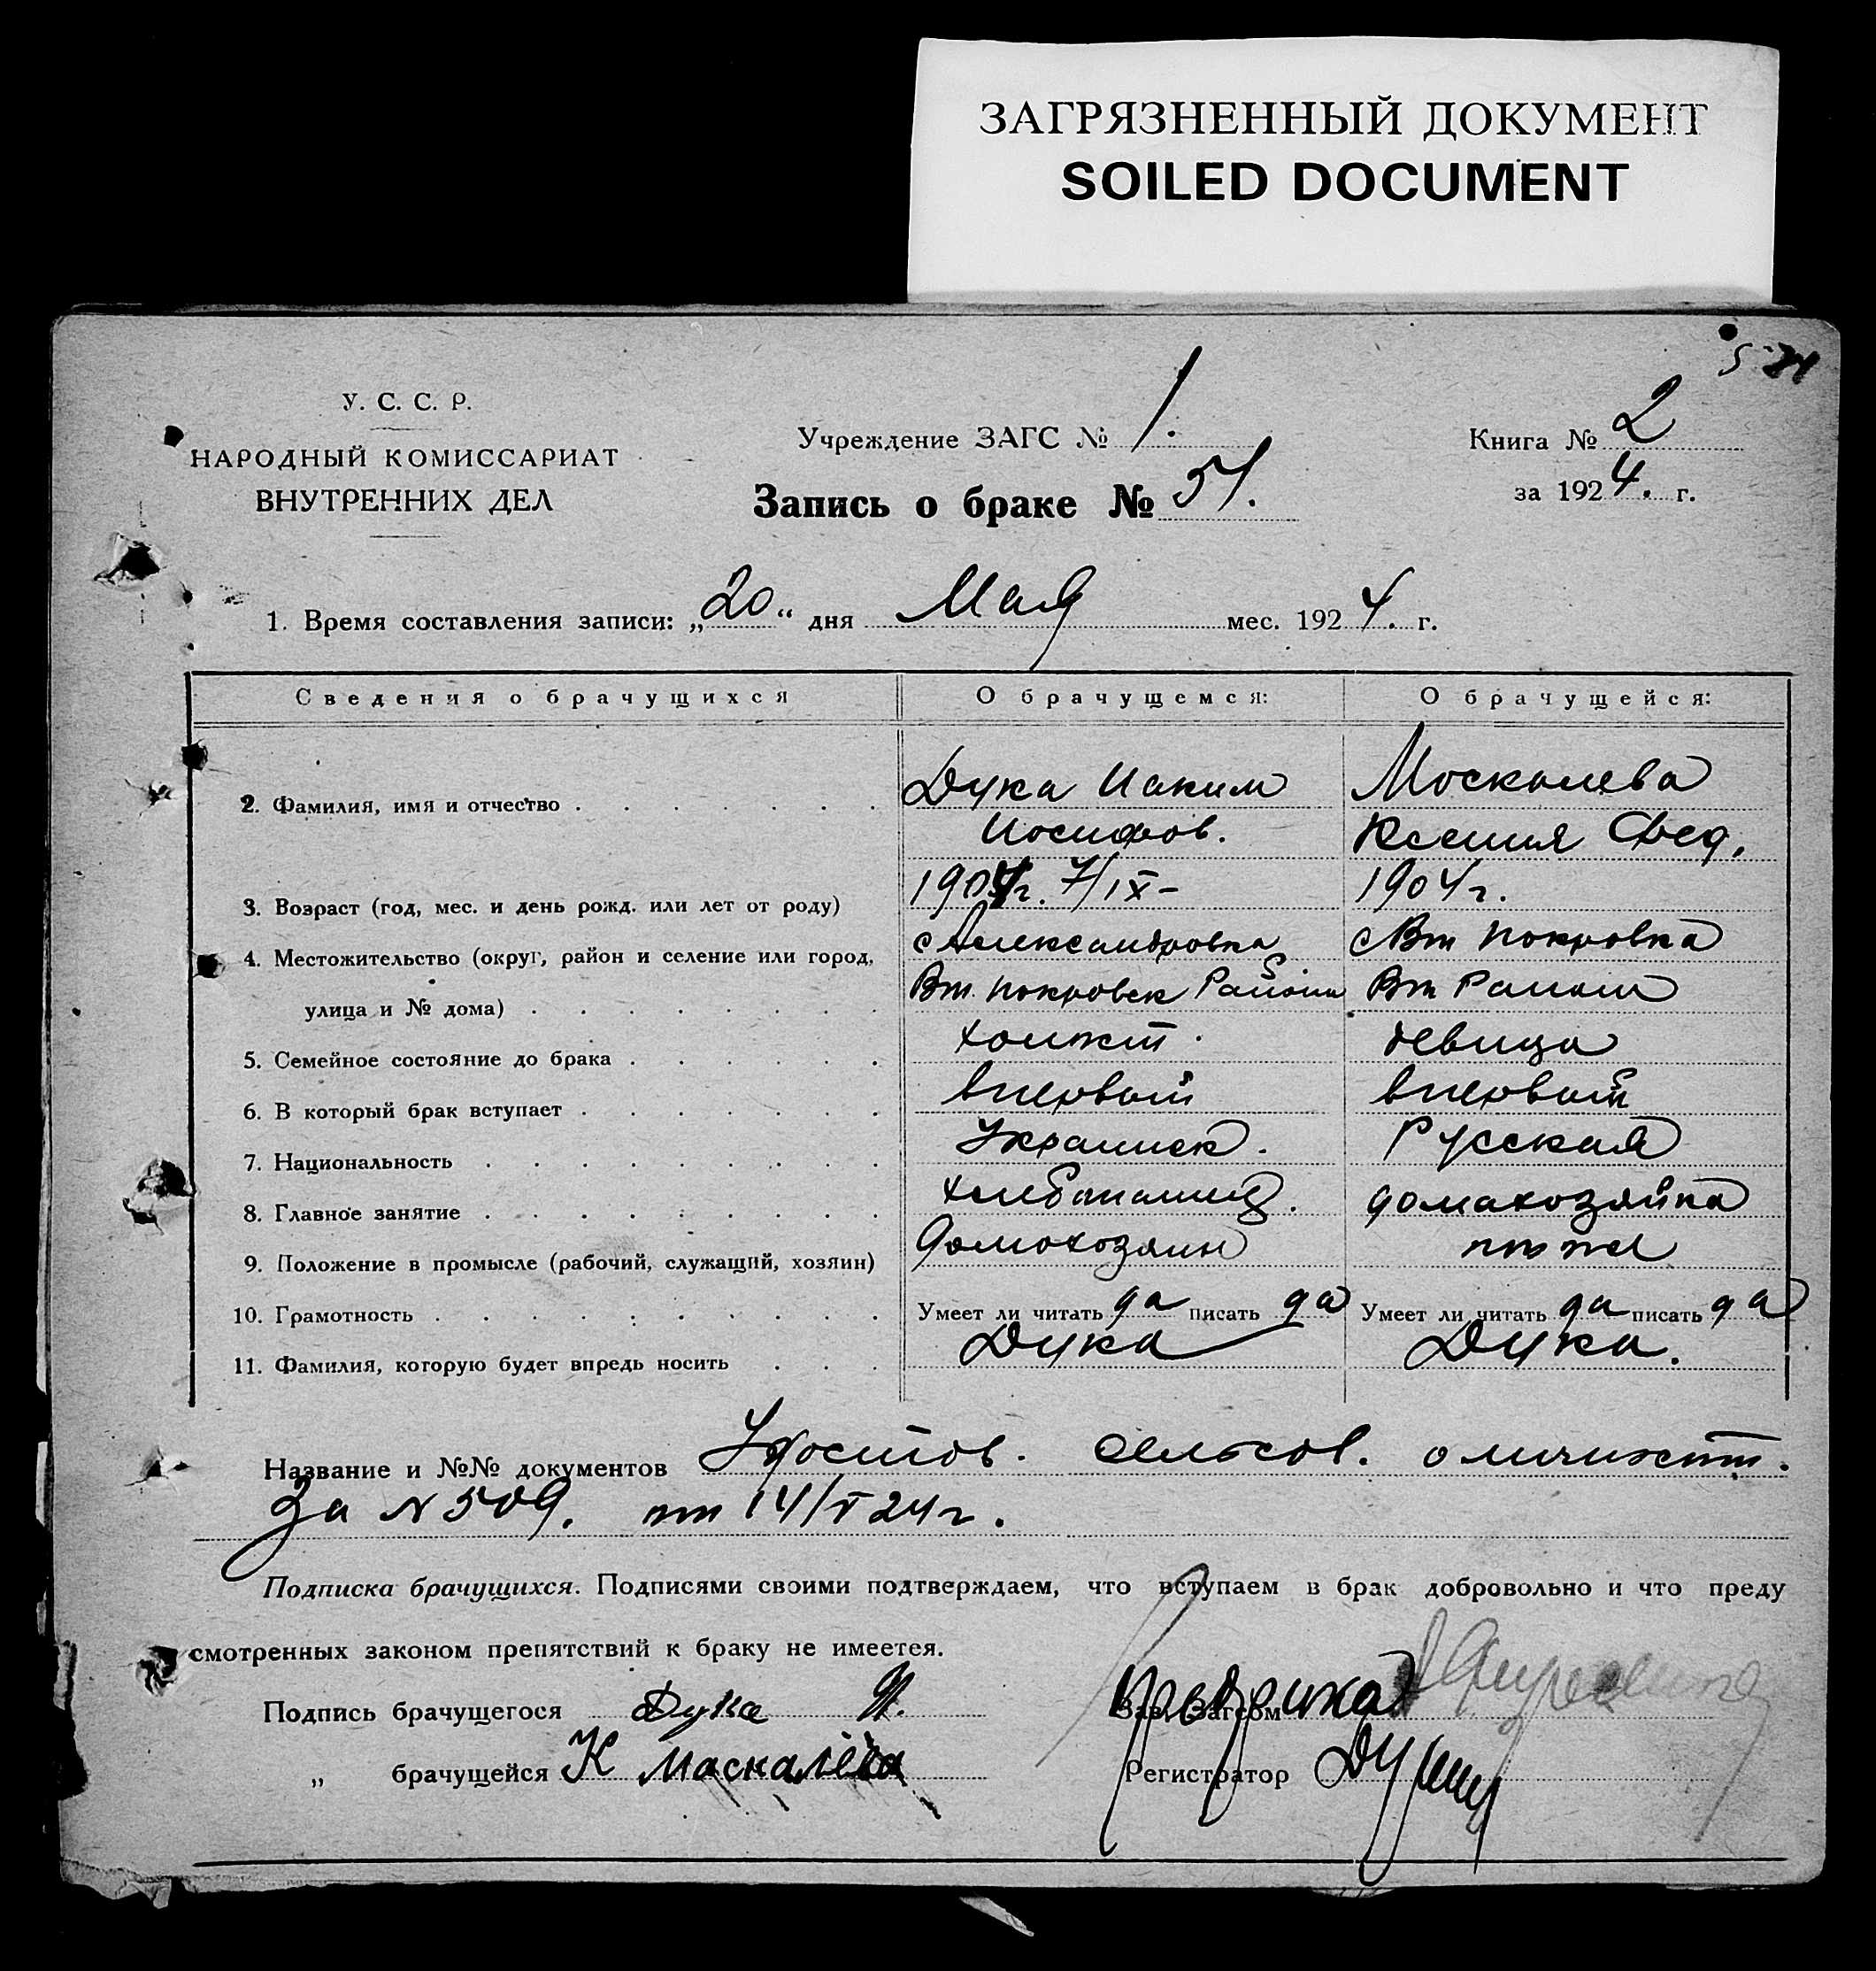 ЗАГРЯЗНЕННЫЙ ДОКУМЕНТ
SOILED DOCUMENT
У. С. С. Р.
НАРОДНЫЙ КОМИССАРИАТ
ВНУТРЕННИХ ДЕЛ
Учреждение ЗАГС № 1.
Запись о браке № 51.
Книга № 2
за 1924. г.
1. Время составления записи: „20“ дня Мая мес. 1924. г.
Сведения о брачущихся О брачущемся: О брачущейся:
2. Фамилия, имя и отчество Дука Иаким Москалева
Иосифов. Ксения Фед.
3. Возраст (год, мес. и день рожд. или лет от роду) 7/IX- 1904 г.
4. Местожительство (округ, район и селение или город, с Александровка с Вт Покровка
улица и № дома) Вт. Покровск Района Вт Района
5. Семейное состояние до брака холост. девица
6. В который брак вступает впервый впервый
7. Национальность Украинск. Русская
8. Главное занятие хлебопашец. домахозяйка
9. Положение в промысле (рабочий, служащий, хозяин) Домохозяин
10. Грамотность Умеет ли читать да писать да Умеет ли читать да писать да
11. Фамилия, которую будет впредь носить Дука Дука.
Название и №№ документов Удостов. сельсов. о личност.
За N 509. от 14/V 24 г.
Подписка брачущихся. Подписями своими подтверждаем, что вступаем в брак добровольно и что преду
смотренных законом препятствий к браку не имеется.
Подпись брачущегося Дука Я.
Зав. Загсом
„ брачущейся К Маскалёва
Регистратор